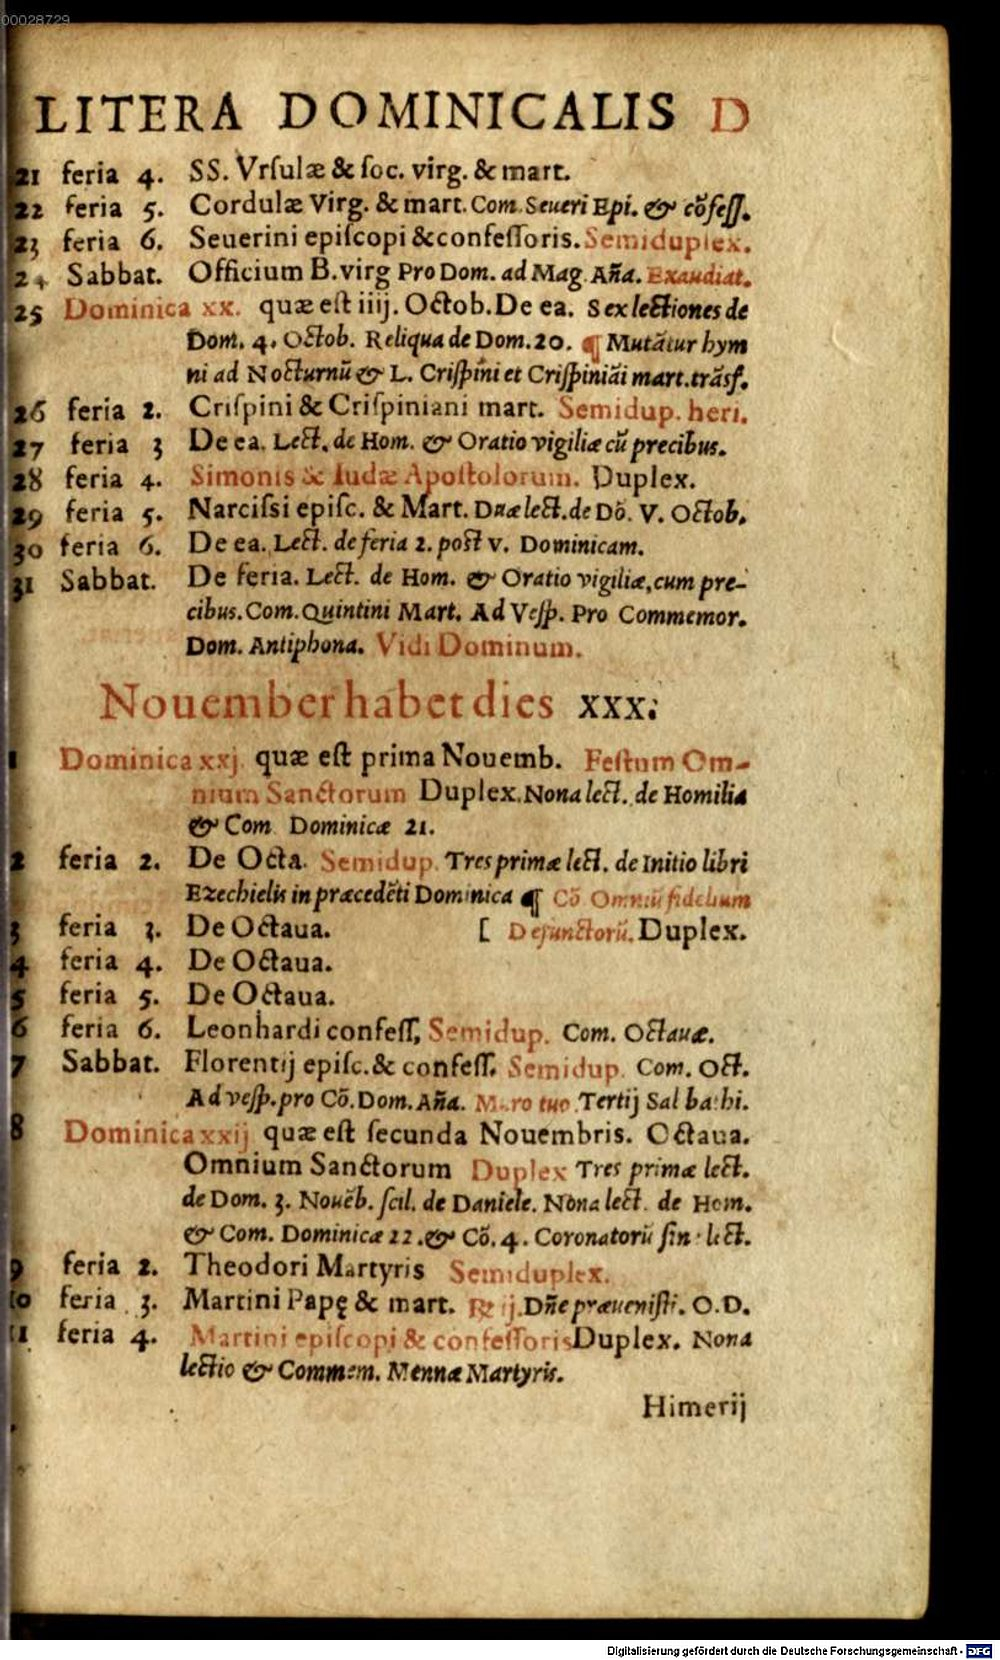 00028729
LITERA DOMINICALIS D
21 feria 4. SS. Vrſulæ & ſoc. virg. & mart.
22 feria 5. Cordulæ Virg. & mart. Com. Seueri Epi. & cõfeſſ.
23 feria 6. Seuerini epiſcopi & confeſſoris. Semiduplex.
24 Sabbat. Officium B. virg Pro Dom. ad Mag. Aña. Exaudiat.
25 Dominica xx. quæ eſt iiij. Octob. De ea. Sex lectiones de
Dom. 4. Octob. Reliqua de Dom. 20. ¶ Mutãtur hym
ni ad Nocturnũ & L. Criſpini et Criſpiniãi mart. trãſf.
26 feria 2. Criſpini & Criſpiniani mart. Semidup. heri.
27 feria 3 De ea. Lect. de Hom. & Oratio vigiliæ cũ precibus.
28 feria 4. Simonis & Iudæ Apoſtolorum. Duplex.
29 feria 5. Narciſsi epiſc. & Mart. Duæ lect. de Dõ. V. Octob.
30 feria 6. De ea. Lect. de feria 2. poſt v. Dominicam.
31 Sabbat. De feria. Lect. de Hom. & Oratio vigiliæ, cum pre-
cibus. Com. Quintini Mart. Ad Veſp. Pro Commemor.
Dom. Antiphona. Vidi Dominum.
Nouember habet dies xxx.
1 Dominica xxj. quæ eſt prima Nouemb. Feſtum Om-
nium Sanctorum Duplex. Nona lect. de Homilia
& Com Dominicæ 21.
2 feria 2. De Octa. Semidup. Tres primæ lect. de Initio libri
Ezechielis in præcedẽti Dominica ¶ Cõ Omniũ fidelium
3 feria 3. De Octaua. [ Defunctorũ. Duplex.
4 feria 4. De Octaua.
5 feria 5. De Octaua.
6 feria 6. Leonhardi confeſſ, Semidup. Com. Octauæ.
7 Sabbat. Florentij epiſc. & confeſſ. Semidup. Com. Oct.
Ad veſp. pro Cõ. Dom. Aña. Muro tuo. Tertij Salbathi.
8 Dominica xxij quæ eſt ſecunda Nouembris. Octaua.
Omnium Sanctorum Duplex Tres primæ lect.
de Dom. 3. Nouẽb. ſcil. de Daniele. Nona lect. de Hom.
& Com. Dominicæ 22. & Cõ. 4. Coronatorũ ſine lect.
9 feria 2. Theodori Martyris Semiduplex.
10 feria 3. Martini Papę & mart. ℟ ij. Dñe præueniſti. O. D.
11 feria 4. Martini epiſcopi & confeſſoris Duplex. Nona
lectio & Commem. Mennæ Martyris.
Himerij
Digitalisierung gefördert durch die Deutsche Forschungsgemeinschaft - DFG